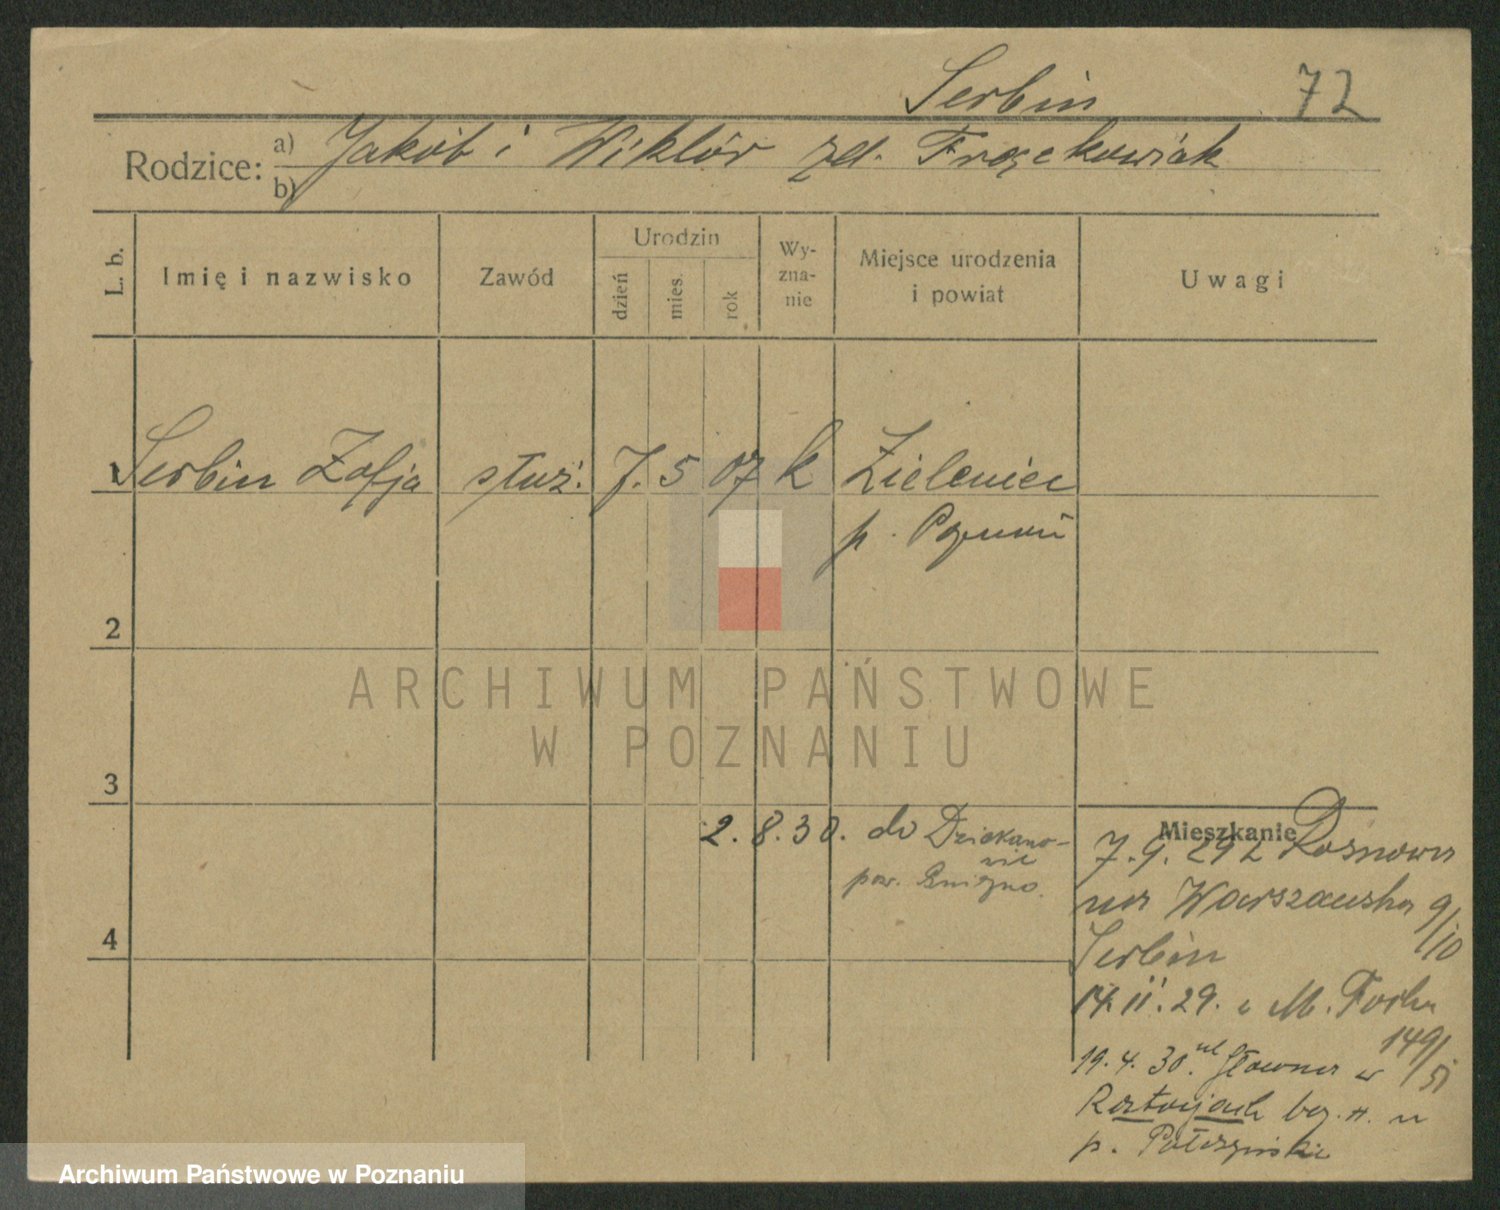 Serbin 72
Rodzice: a) Jakób i Wiktór zd. Frąckowiak
b)
L. b.
Imię i nazwisko
Zawód
Urodzin
dzień
mies.
rok
Wy-
zna-
nie
Miejsce urodzenia
i powiat
Uwagi
1 Serbin Zofja służ. 7. 5 07 k Zieleniec
p. Poznań
2
ARCHIWUM PAŃSTWOWE
W POZNANIU
3
2. 8. 30. do Dziekano-
wic
pow. Gniezno.
4
Mieszkanie
7. 9. 29 z Rosnowa
na Warszawska 9/10
Serbin
14. 11. 29. M. Focha
149/51
19. 4. 30. ul Główna w
Ratajach bez. n. u
p.
Archiwum Państwowe w Poznaniu